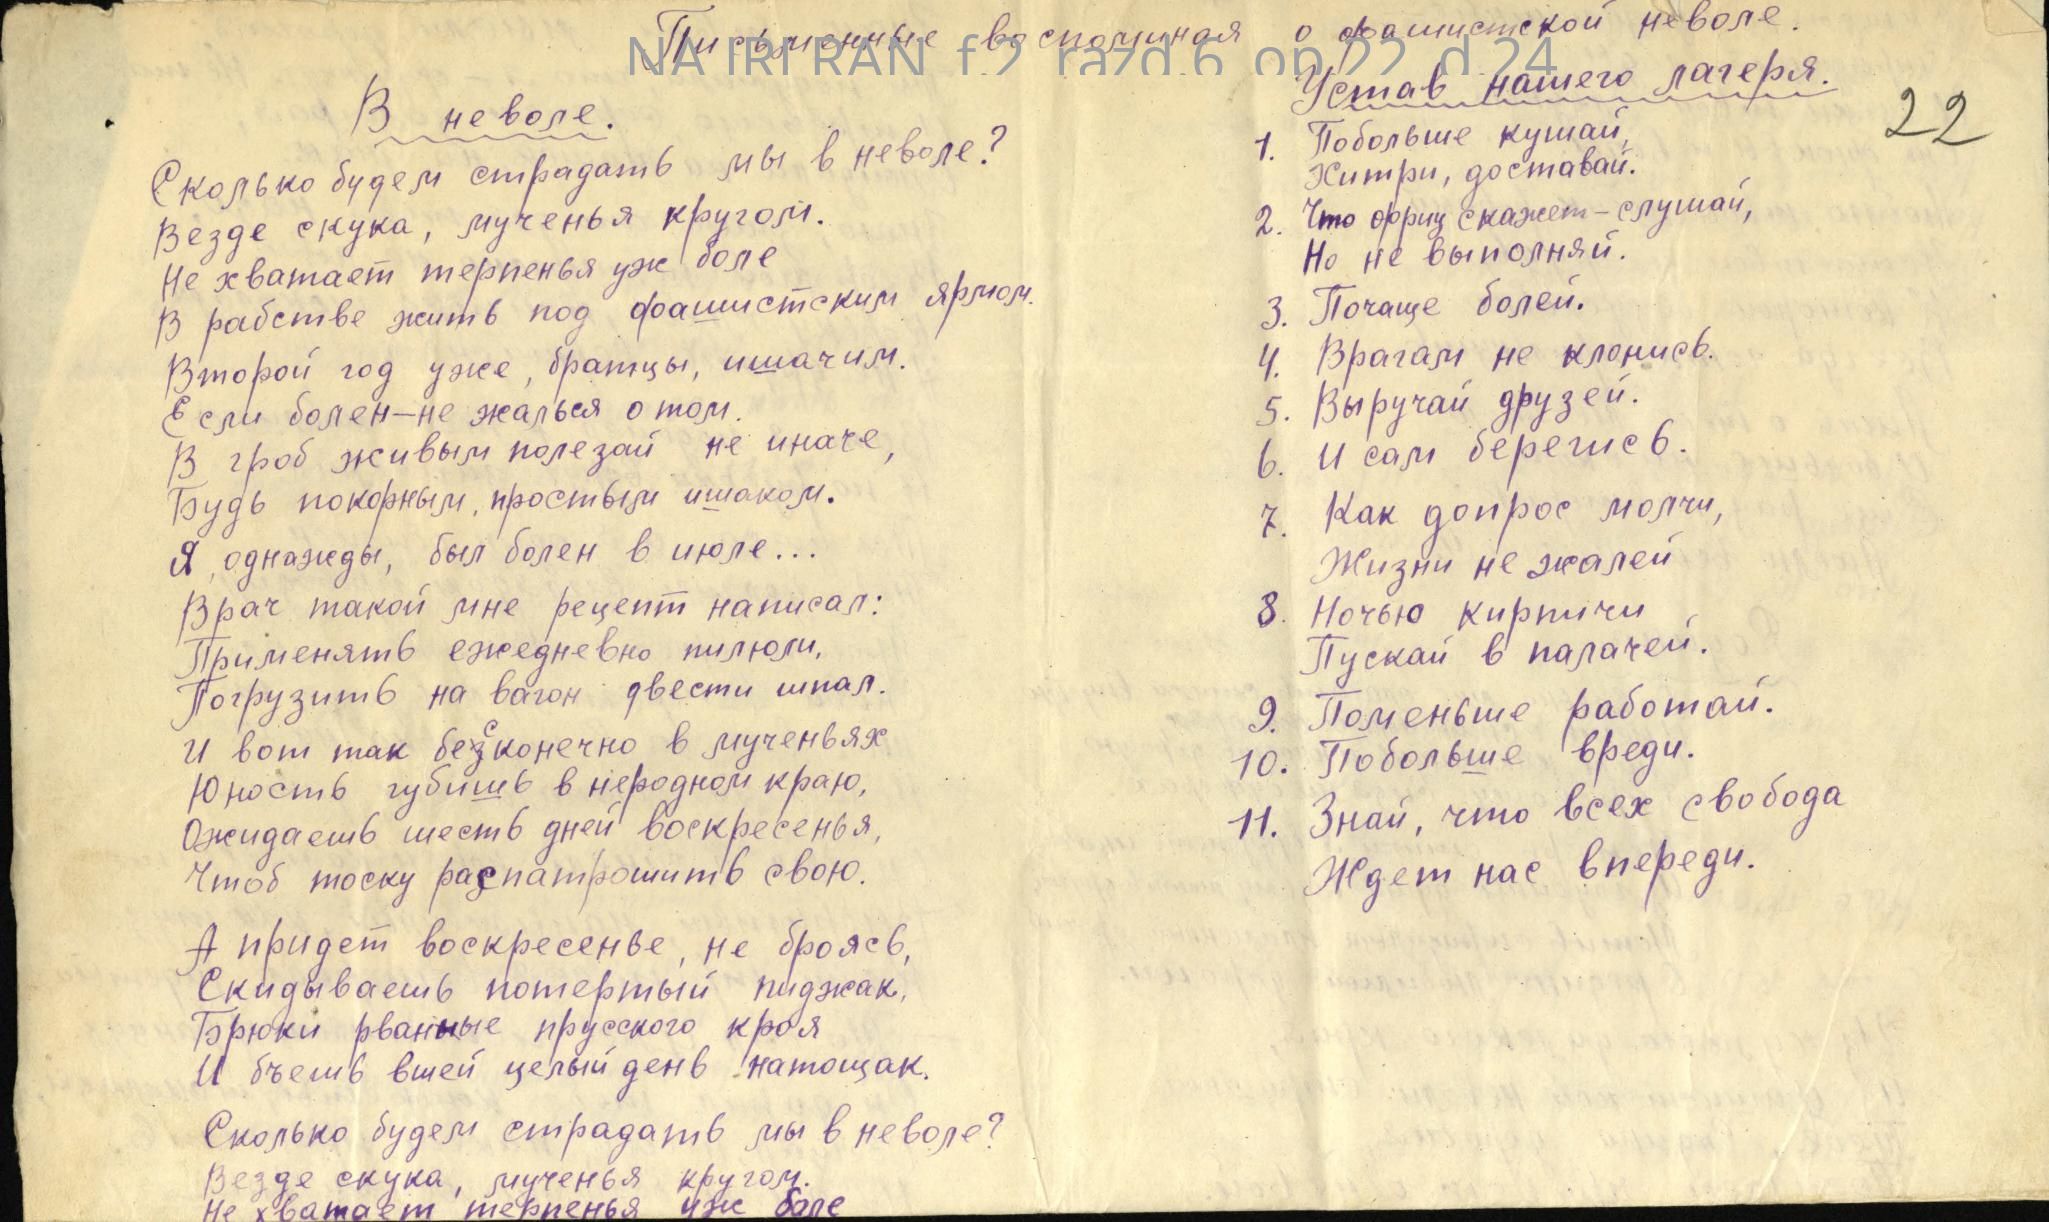 Письменные воспоминая о фашистской неволе.
NA IRLI RAN f.2 razd.6 op.22 d.24
22
В неволе.
Сколько будем страдать мы в неволе?
Везде скука, мученья кругом.
Не хватает терпенья уж боле
В рабстве жить под фашистским ярмом.
Второй год уже, братцы, ишачим.
Если болен – не жалься о том.
В гроб живым полезай не иначе,
Будь покорным, простым ишаком.
Я, однажды, был болен в июле...
Врач такой мне рецепт написал:
Применять ежедневно пилюли,
Погрузить на вагон двести шпал.
И вот так бесконечно в мученьях
Юность губишь в неродном краю,
Ожидаешь шесть дней воскресенья,
Чтоб тоску распатрошить свою.
А придет воскресенье, не броясь,
Скидываешь потертый пиджак,
Брюки рванные прусского кроя
И бъешь вшей целый день натощак.
Сколько будем страдать мы в неволе?
Везде скука, мученья кругом.
Не хватает терпенья уж боле
Устав нашего лагеря.
1. Побольше кушай,
Хитри, доставай.
2. Что фриц скажет – слушай,
Но не выполняй.
3. Почаще болей.
4. Врагам не клонись.
5. Выручай друзей.
6. И сам берегись.
7. Как допрос молчи,
Жизни не жалей
8. Ночью кирпичи
Пускай в палачей.
9. Поменьше работай.
10. Побольше вреди.
11. Знай, что всех свобода
Ждет нас впереди.